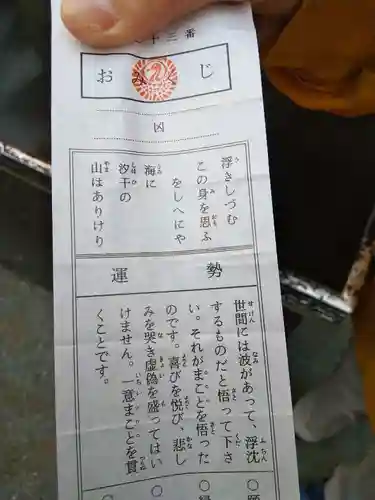 十三番
おみくじ
凶
浮きしづむ
この身を思ふ
をしへにや
海に
汐干の
山はありけり
運勢
世間には波があって、浮沈
するものだと悟って下さ
い。それがまことを悟った
のです。喜びを悦び、悲し
みを哭き虚偽を盛ってはい
けません。一意まことを貫
くことです。